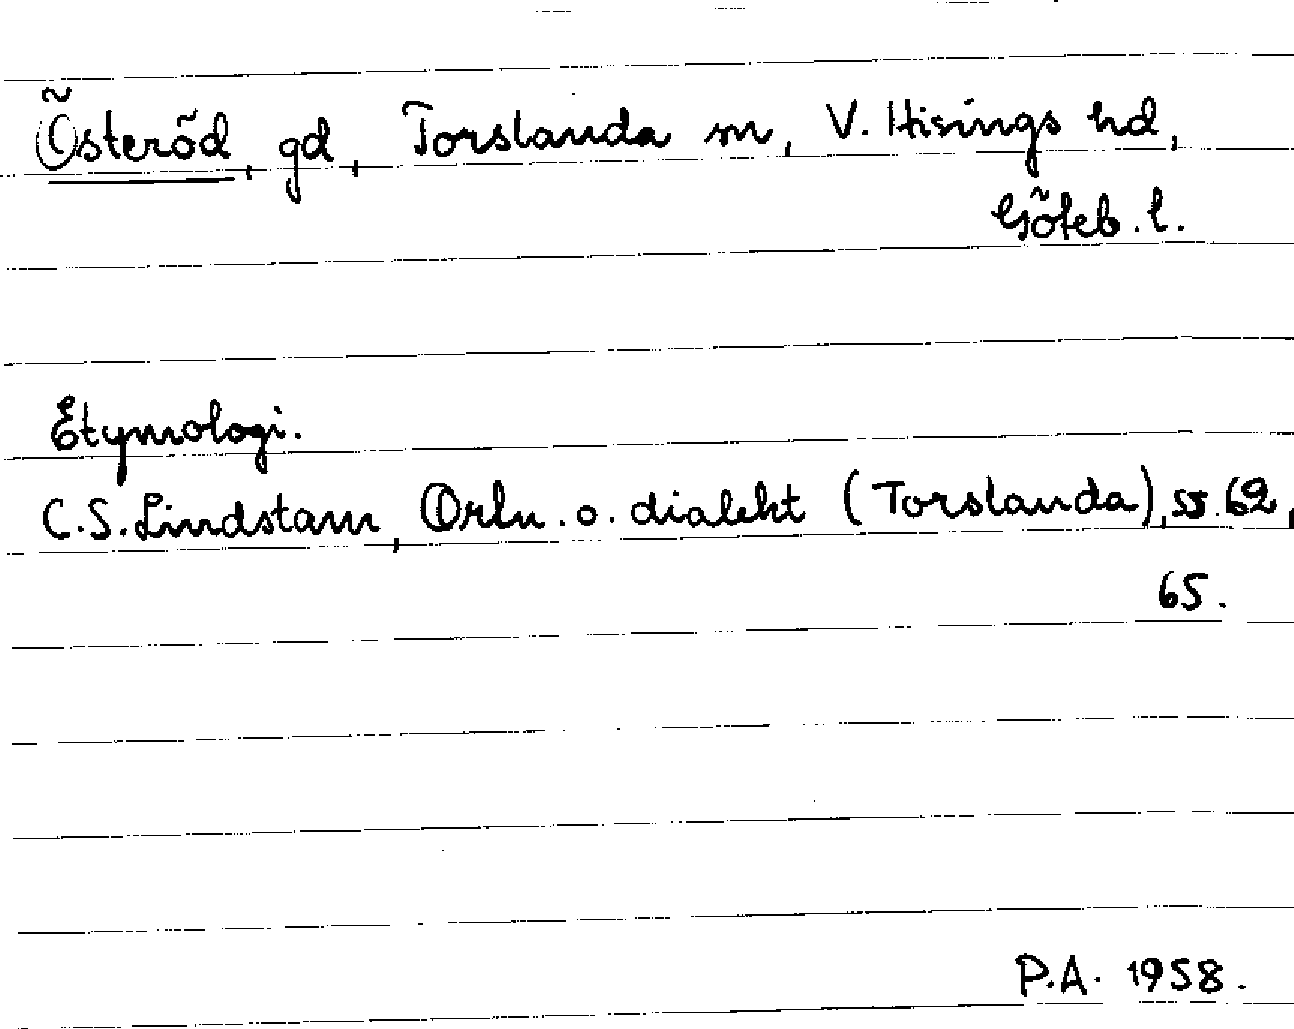 Österöd, gd, Torslanda sn, V. Hisings hd,
Göteb. l.
Etymologi.
C.S. Lindstam, Ortn. o. dialekt (Torslanda), ss. 62,
65.
P.A. 1958.